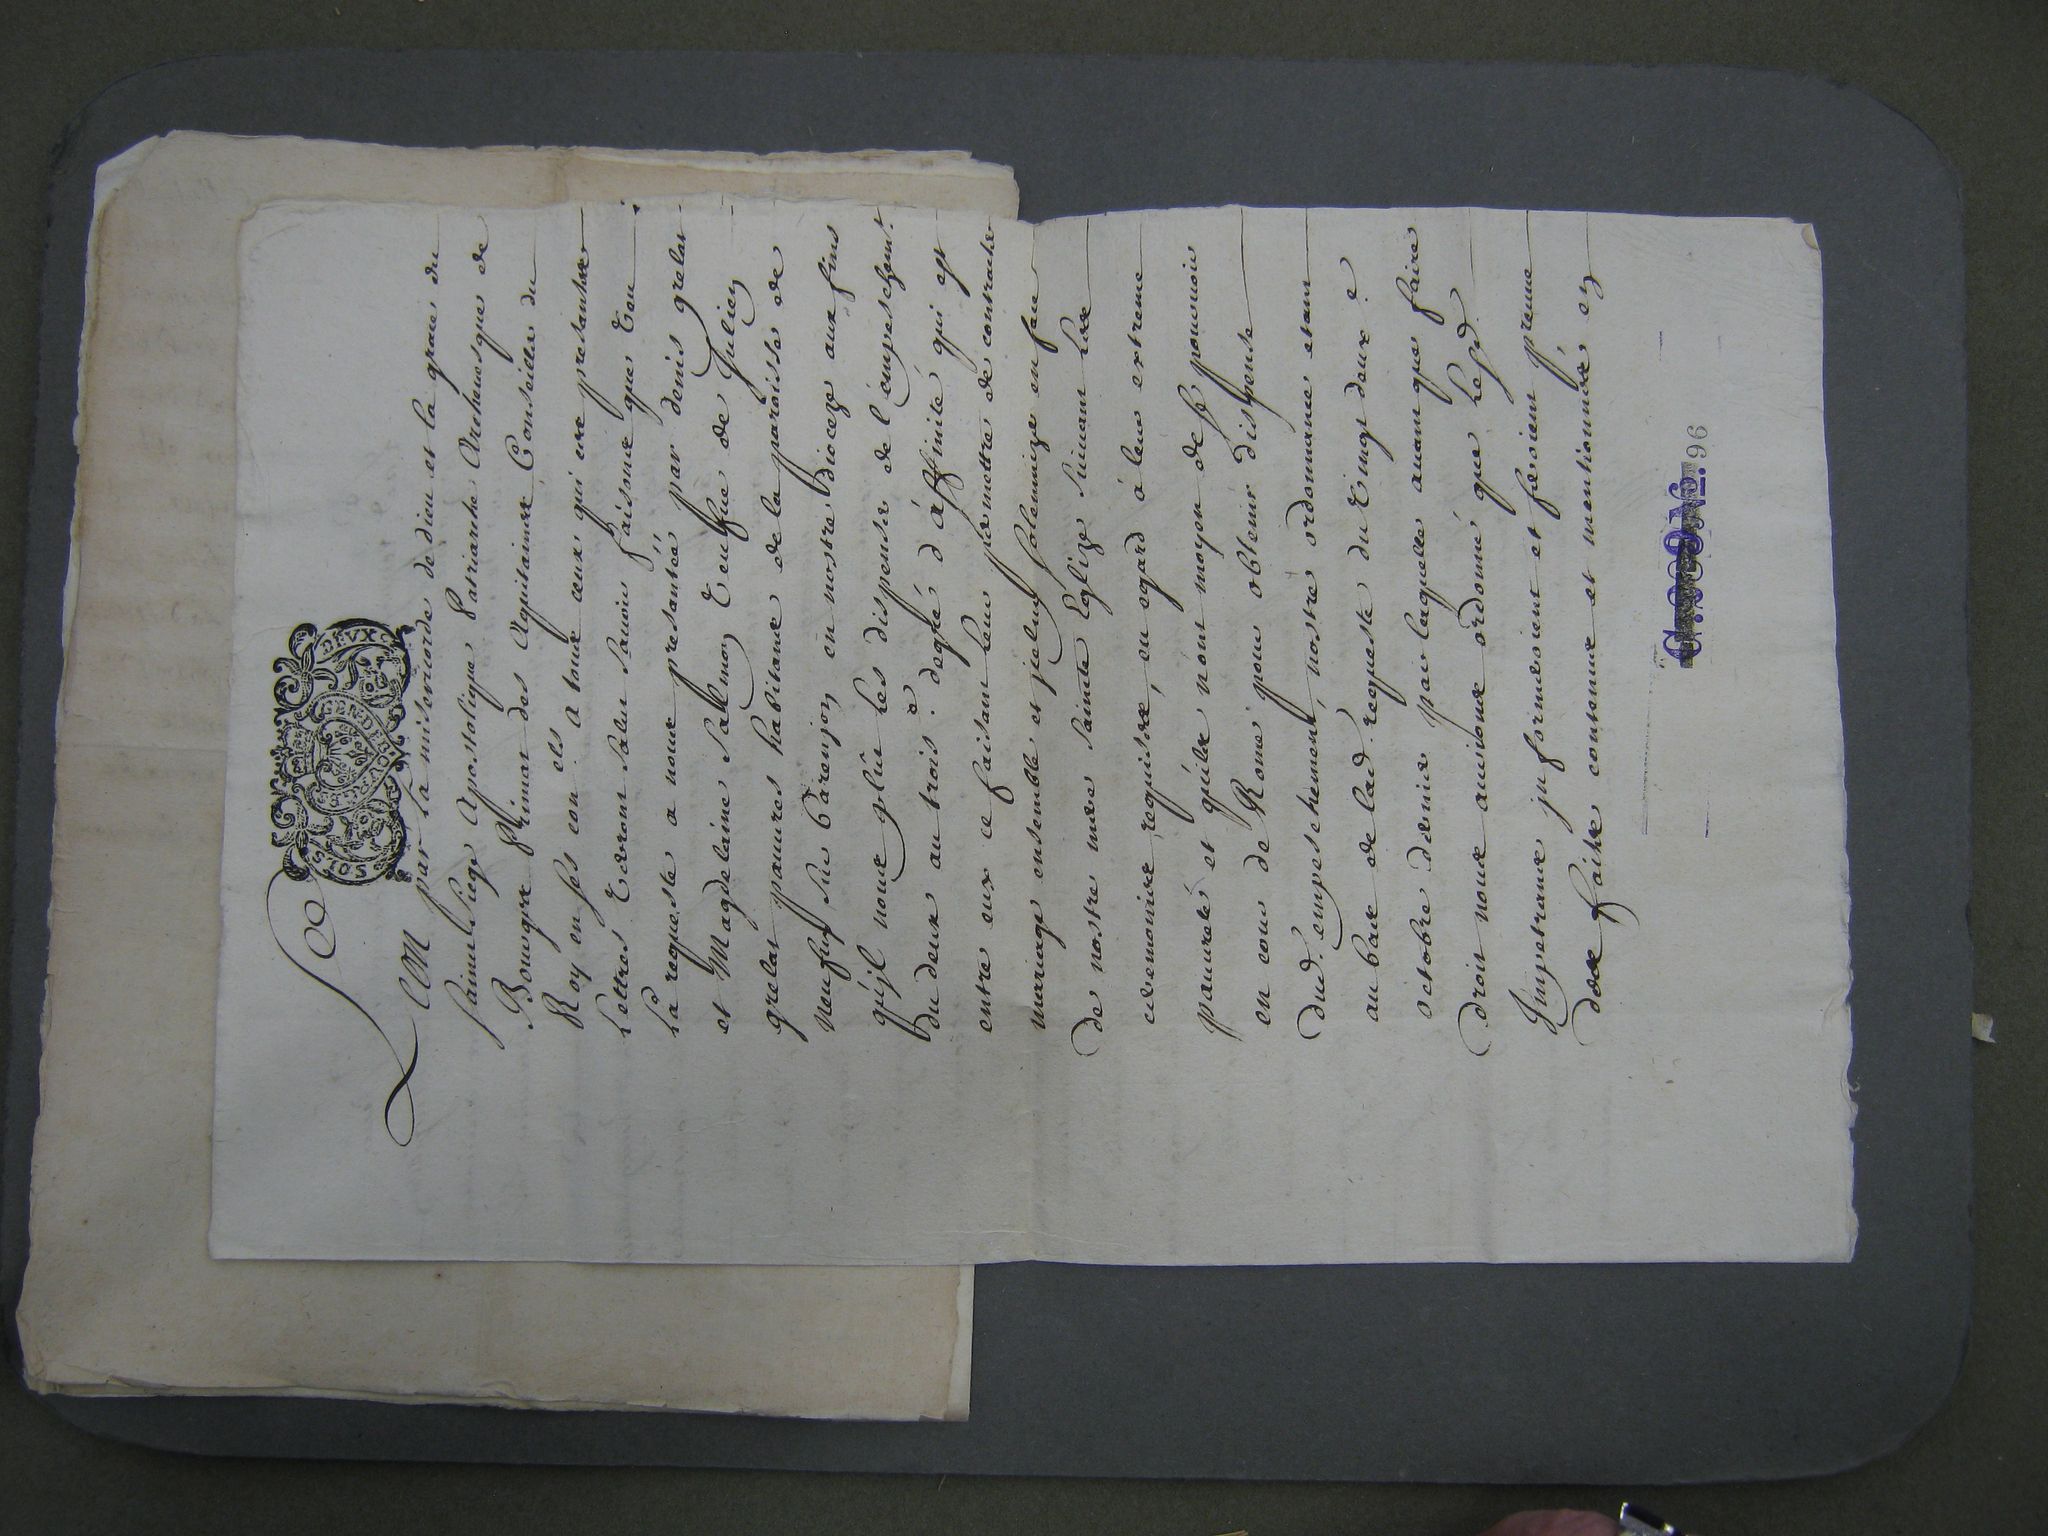 DEVX SOLS
GEN DE BOVRGES
Leon par la misericorde de dieu et la grace du
saint Siege Apostolique Patriarche Archeuesque de
Bourges Primat des Aquitaines, Conseiller du
Roy en ses con. els a tous ceux qui ces presantes
Lettres Verront Salut sauoir faisons que Veu
la requeste a nous presantée par denis grelat
et Magdelaine Salmon Veufue de Julien
grelat pauures habitans de la paroisse de
neufuy sur Barenjon en nostre dioceze aux fins
qu'jl nous plût les dispenser de l'empeschem.t
du deux au trois.e degré d'affinité qui est
entre eux ce faisant leur permettre de contracter
mariage ensemble et jceluy solemnizer en face
de nostre mere sainte Eglize suiuant les
ceremonies requises, eu egard à leur extreme
pauureté et qu'ils n'ont moyen de se pouruoir
en cour de Rome pour obtenir dispense
dud. empeschement, nostre ordonnance etant
au bas de lad. requeste du Vingt deux.e
octobre dernier par laquelle auant que faire
droit nous aurions ordonné que lesd.
Impetrans jnformeroient et feroient preuue
des faits contenus et mentionnés en
96